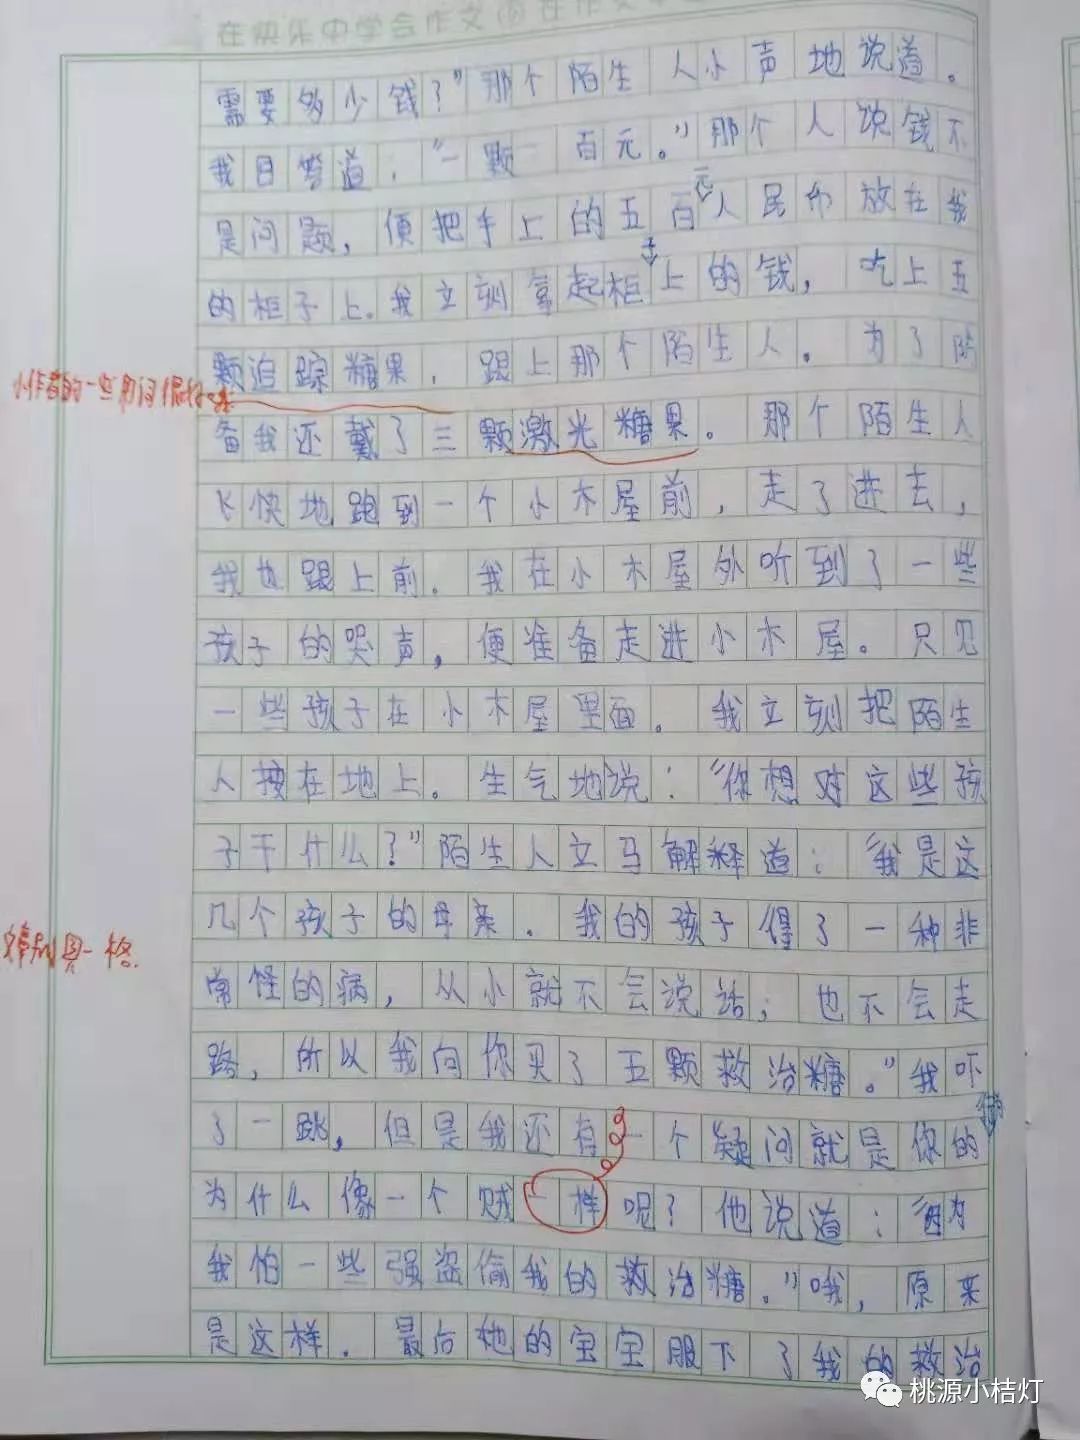 在快乐中学会作文
需要多少钱？”那个陌生人小声地说道。
我回答道：“一颗一百元。”那个人说钱不
是问题，便把手上的五百元人民币放在我
的柜子上。我立刻拿起柜子上的钱，吃上五
颗追踪糖果，跟上那个陌生人。为了防
小作者的一些
备我还戴了三颗激光糖果。那个陌生人
飞快地跑到一个小木屋前，走了进去，
我也跟上前。我在小木屋外听到了一些
孩子的哭声，便准备走进小木屋。只见
一些孩子在小木屋里面。我立刻把陌生
人按在地上。生气地说：“你想对这些孩
子干什么？”陌生人立马解释道：“我是这
几个孩子的母亲。我的孩子得了一种非
文章别具一格.
常怪的病，从小就不会说话；也不会走
路，所以我向你买了五颗救治糖。”我吓
了一跳，但是我还有一个疑问就是你的
为什么像一个贼一样呢？他说道：“因为
我怕一些强盗偷我的救治糖。”哦，原来
是这样。最后她的宝宝服下了我的救治
桃源小桔灯